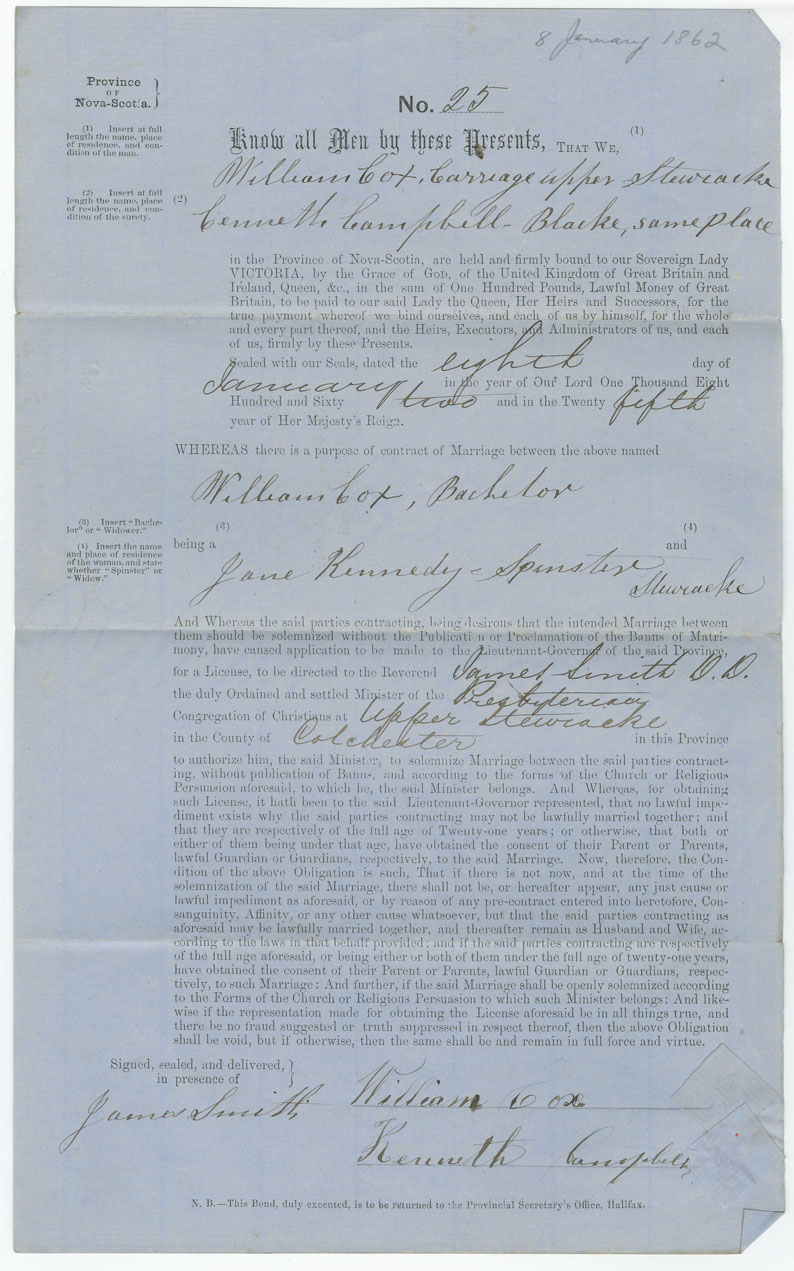 8 January 1862
Province
OF
Nova-Scotia.
No. 25
(1) Insert at full
length the name, place
of residence, and con-
dition of the man.
Know all Men by these Presents, THAT WE, (1)
William Cox, Carriage upper Stewiacke
(2) Insert at full
length the name, place
of residence, and con-
dition of the surety.
(2)
Cenneth Campbell - Blacke, same place
in the Province of Nova-Scotia, are held and firmly bound to our Sovereign Lady
VICTORIA, by the Grace of GOD, of the United Kingdom of Great Britain and
Ireland, Queen, &c., in the sum of One Hundred Pounds, Lawful Money of Great
Britain, to be paid to our said Lady the Queen, Her Heirs and Successors, for the
true payment whereof we bind ourselves, and each of us by himself, for the whole
and every part thereof, and the Heirs, Executors, and Administrators of us, and each
of us, firmly by these Presents.
Sealed with our Seals, dated the eighth day of
January in the year of Our Lord One Thousand Eight
Hundred and Sixty two and in the Twenty fifth
year of Her Majesty's Reign.
WHEREAS there is a purpose of contract of Marriage between the above named
William Cox, Bachelor
(3) Insert "Bache-
lor" or "Widower."
(4) Insert the name
and place of residence
of the woman, and state
whether "Spinster" or
"Widow."
(3) (4)
being a and
Jane Kennedy - Spinster
Stewiacke
And Whereas the said parties contracting, being desirous that the intended Marriage between
them should be solemnized without the Publicati n or Proclamation of the Banns of Matri-
mony, have caused application to be made to the Lieutenant-Governor of the said Province,
for a License, to be directed to the Reverend James Smith D.D.
the duly Ordained and settled Minister of the Presbyterian
Congregation of Christians at Upper Stewiacke
in the County of Colchester in this Province
to authorize him, the said Minister, to solemnize Marriage between the said parties contract-
ing, without publication of Banns, and according to the forms of the Church or Religious
Persuasion aforesaid, to which he, the said Minister belongs. And Whereas, for obtaining
such License, it hath been to the said Lieutenant-Governor represented, that no lawful impe-
diment exists why the said parties contracting may not be lawfully married together; and
that they are respectively of the full age of Twenty-one years; or otherwise, that both or
either of them being under that age, have obtained the consent of their Parent or Parents,
lawful Guardian or Guardians, respectively, to the said Marriage. Now, therefore, the Con-
dition of the above Obligation is such, That if there is not now, and at the time of the
solemnization of the said Marriage, there shall not be, or hereafter appear, any just cause or
lawful impediment as aforesaid, or by reason of any pre-contract entered into heretofore, Con-
sanguinity, Affinity, or any other cause whatsoever, but that the said parties contracting as
aforesaid may be lawfully married together, and thereafter remain as Husband and Wife, ac-
cording to the laws in that behalf provided; and if the said parties contracting are respectively
of the full age aforesaid, or being either or both of them under the full age of twenty-one years,
have obtained the consent of their Parent or Parents, lawful Guardian or Guardians, respec-
tively, to such Marriage: And further, if the said Marriage shall be openly solemnized according
to the Forms of the Church or Religious Persuasion to which such Minister belongs: And like-
wise if the representation made for obtaining the License aforesaid be in all things true, and
there be no fraud suggested or truth suppressed in respect thereof, then the above Obligation
shall be void, but if otherwise, then the same shall be and remain in full force and virtue.
Signed, sealed, and delivered,
in presence of
James Smith
William Cox
Kenneth Campbell
N. B.—This Bond, duly executed, is to be returned to the Provincial Secretary's Office, Halifax.